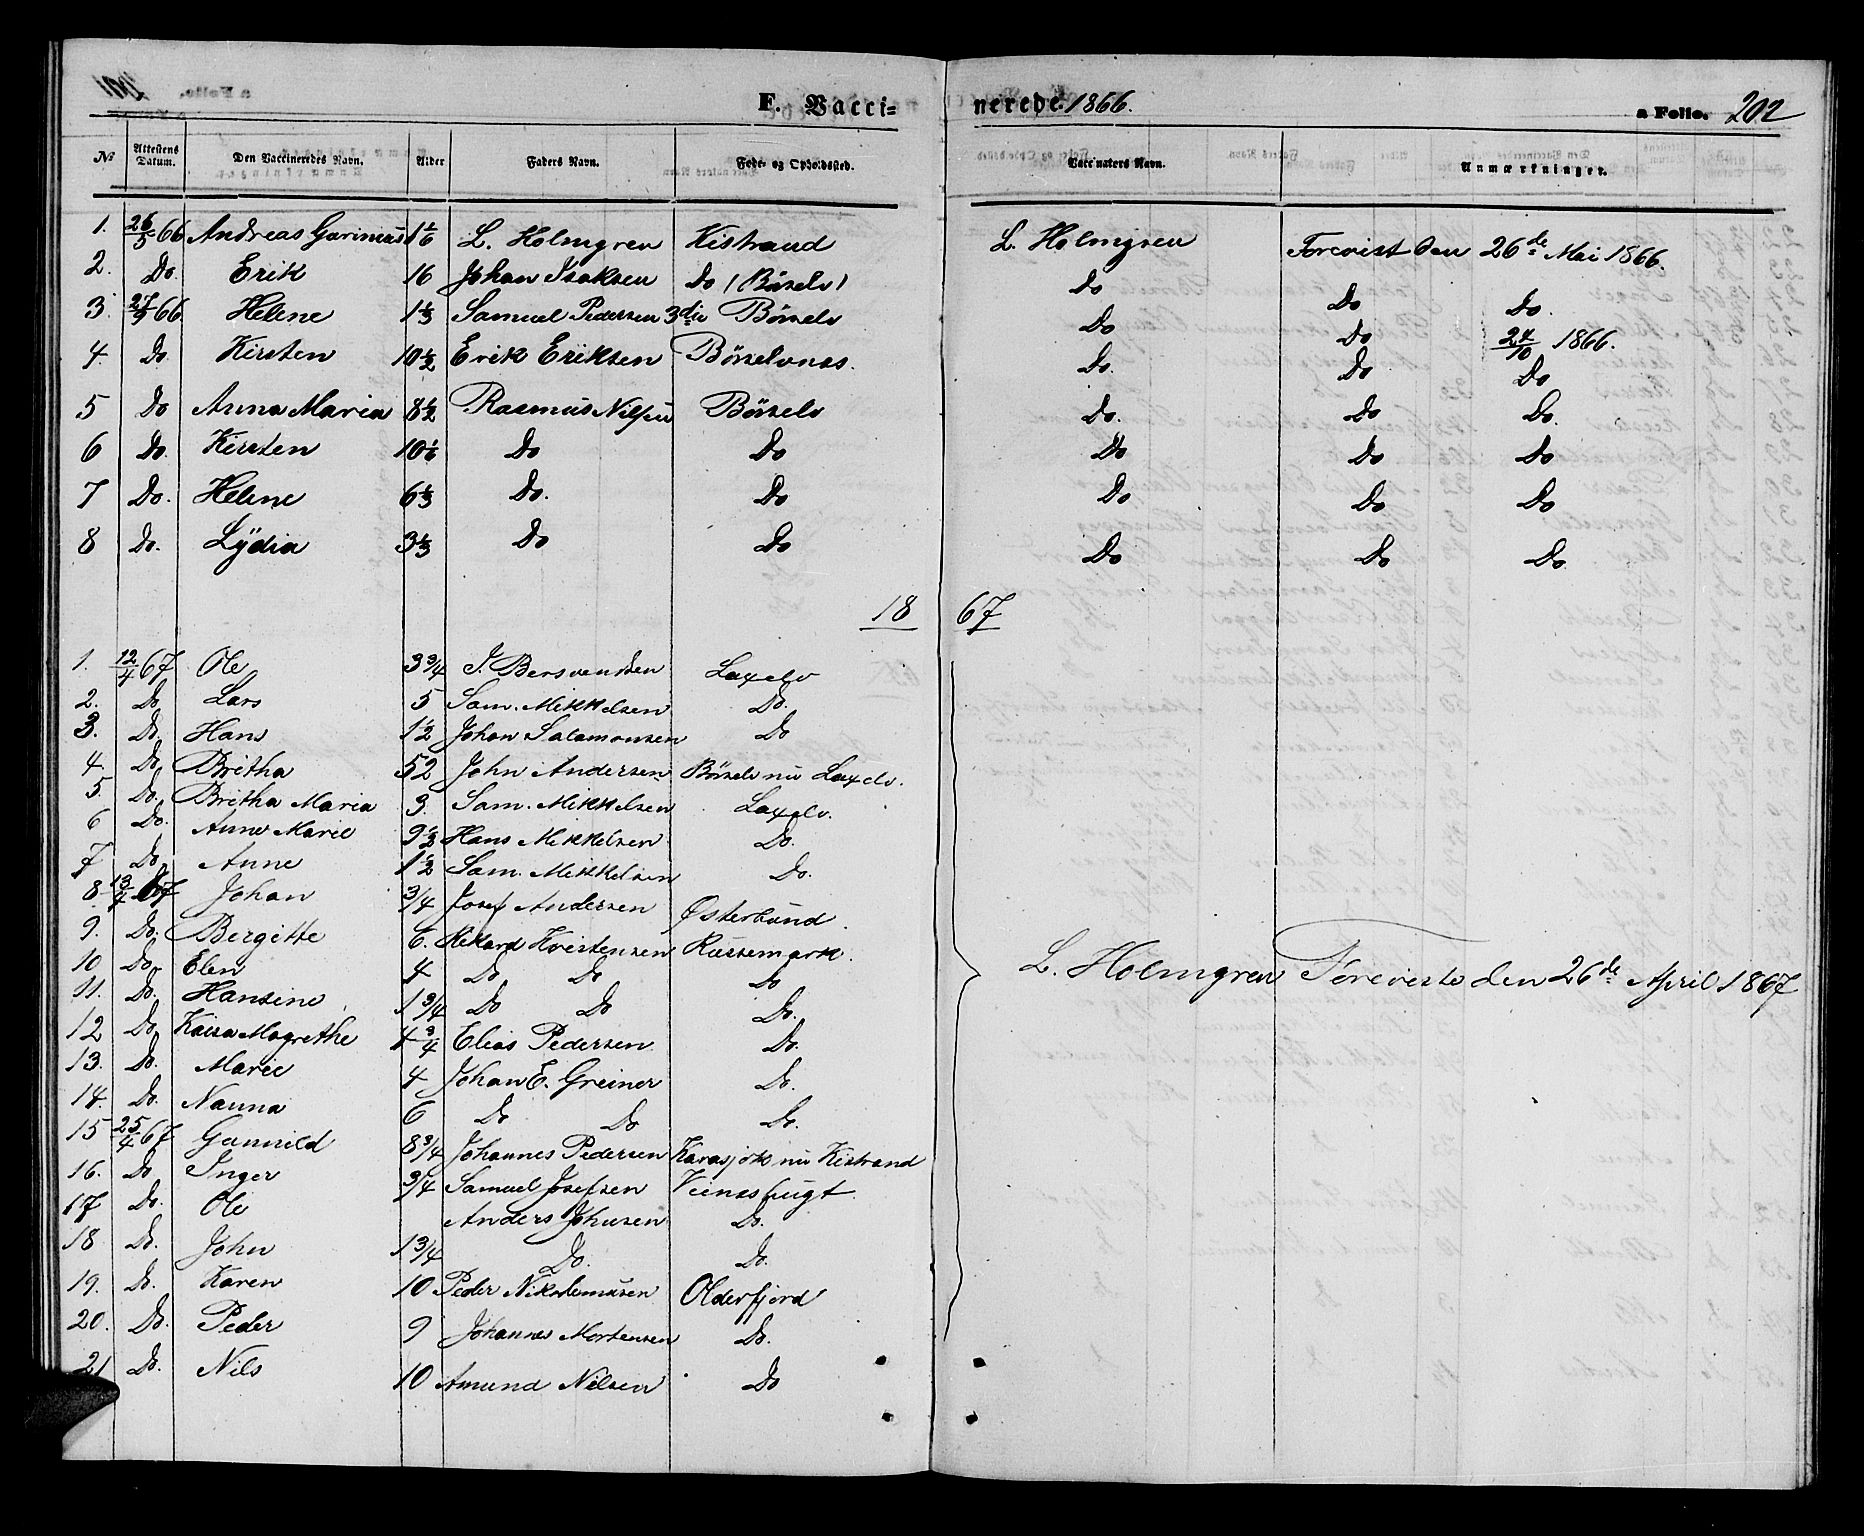 F. Vaccinerede 1866. a Folio. 202
№ Attestens Datum. Den Vaccineredes Navn. Alder Faders Navn. Føde- og Opholdssted. Vaccinators Navn. Anmærkninger.
1. 26/5 66 Andreas Garimus 1 1/6 L. Holmgren Kistrand L. Holmgren Forevist den 26de Mai 1866.
2. Do. Erik 16 Johan Isaksen Do (Börselv) Do Do Do.
3. 27/9 66 Helene 1 1/3 Samuel Pedersen 3die Börselv Do Do 27/10 1866.
4. Do Kirsten 10 1/2 Erik Eriksen Börselvnes. Do. Do Do
5 Do Anna Maria 8 1/2 Rasmus Nilsen Börselv Do. Do Do.
6 Do. Kirsten 10 1/6 Do Do Do Do Do
7 Do. Helene 6 1/3 Do. Do Do Do Do
8 Do. Lÿdia 3 1/3 Do Do Do Do Do
1867
1. 12/4 67 Ole 3 3/4 J. Bersvendsen Laxelv
2. Do Lars 5 Sam. Mikkelsen Do.
3. Do. Hans 1 1/2 Johan Salamonsen Do
4. Do. Britha 52 John Andersen Börselv nu Laxelv.
5. Do. Britha Maria 3. Sam. Mikkelsen Laxelv.
6 Do. Anne Marie 9 1/2 Hans Mikkelsen Do.
7 Do. Anne 1 1/2 Sam. Mikkelsen Do.
8. 13/4 67 Johan 3/4 Josef Andersen Østerbund.
9. Do. Bergitte 6. Rikard Kristensen Russemark. L. Holmgren Foreviste den 26de April 1867
10 Do. Elen 4 Do Do Do
11. Do. Hansine 1 3/4 Do Do Do.
12 Do Kaisa Magrethe 4 3/4 Elias Pedersen Do.
13. Do. Marie 4 Johan E. Greiner Do.
14. Do. Nanna 6 Do Do Do.
15 25/4 67 Gunnild 8 3/4 Johannes Pedersen Karasjok nu Kistrand
16. Do Inger 3/4 Samuel Josefsen Veinesbugt
17 Do. Ole Anders Johnsen Do.
18 Do. John 1 3/4 Do. Do.
19. Do. Karen 10 Peder Nikodemusen Olderfjord
20. Do. Peder 9 Johannes Mortensen Do.
21 Do. Nils 10 Amund Nilsen Do